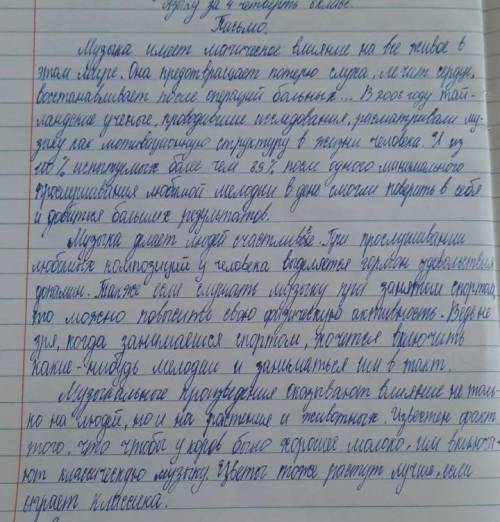 языку за 4 четверть 6 класс.
Письмо.
Музыка имеет магическое влияние на все живое в
этом мире. Она предотвращает потерю слуха, лечит сердце,
восстанавливает после операций больных... В 2006 году Тай-
ландские ученые, проводившие исследования, расматривали му-
зыку как мотивационную структуру в жизни человека. И из
100% испытуемых более чем 89% после одного минимального
прослушивания любимой мелодии в день смогли поверить в себя
и добиться больших результатов.
Музыка делает людей счастливее. При прослушивании
любимых композиций у человека выделяется гормон удовольствия
допамин. Также если слушать музыку при занятии спортом,
то можно повысить свою физическую активность. Ведь не
зря, когда занимаешся спортом, хочится включить
какие-нибудь мелодии и заниматься им в такт.
Музыкальные произведения оказывают влияние не толь-
ко на людей, но и на растение и животных. Известен факт
того, что чтобы у коров было хорошее молоко, им включа-
ют классическую музыку. Цветы тоже растут лучше, если
играет классика.